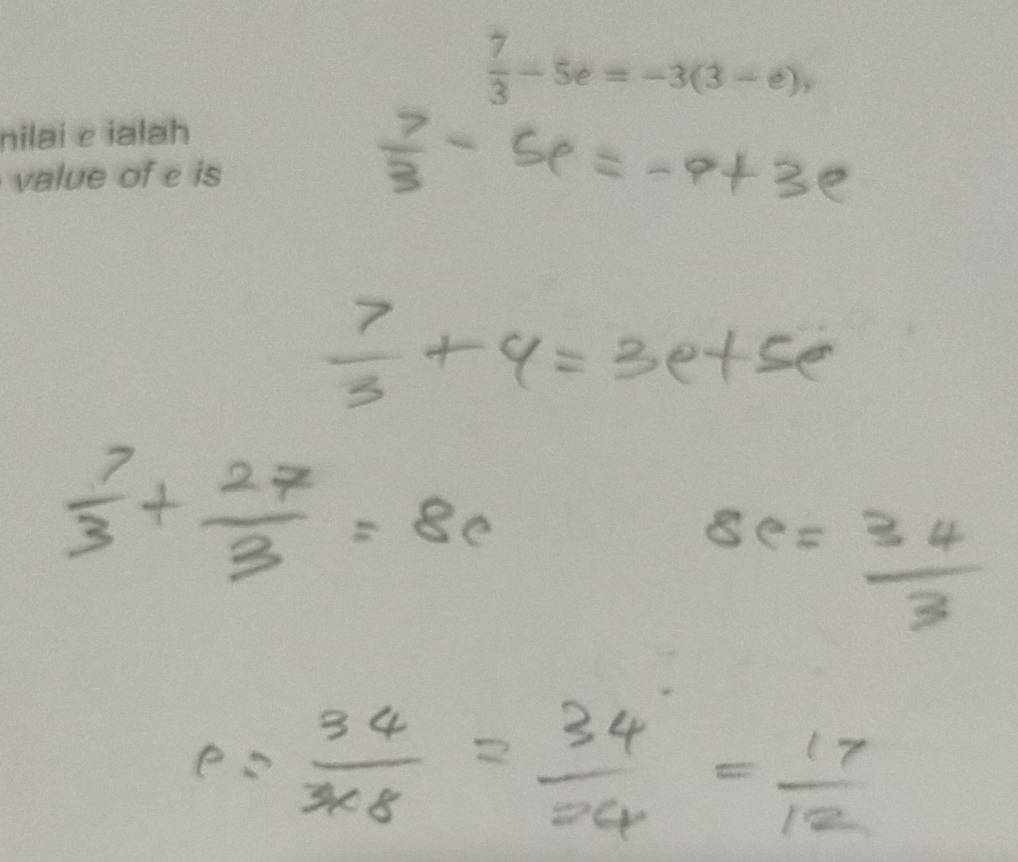 7/3 - 5e = -3(3 - e),
nilai e ialah
value of e is
7/3 - 5e = -9 + 3e
7/3 + 9 = 3e + 5e
7/3 + 27/3 = 8e
8e = 34/3
e = 34/3×8 = 34/24 = 17/12